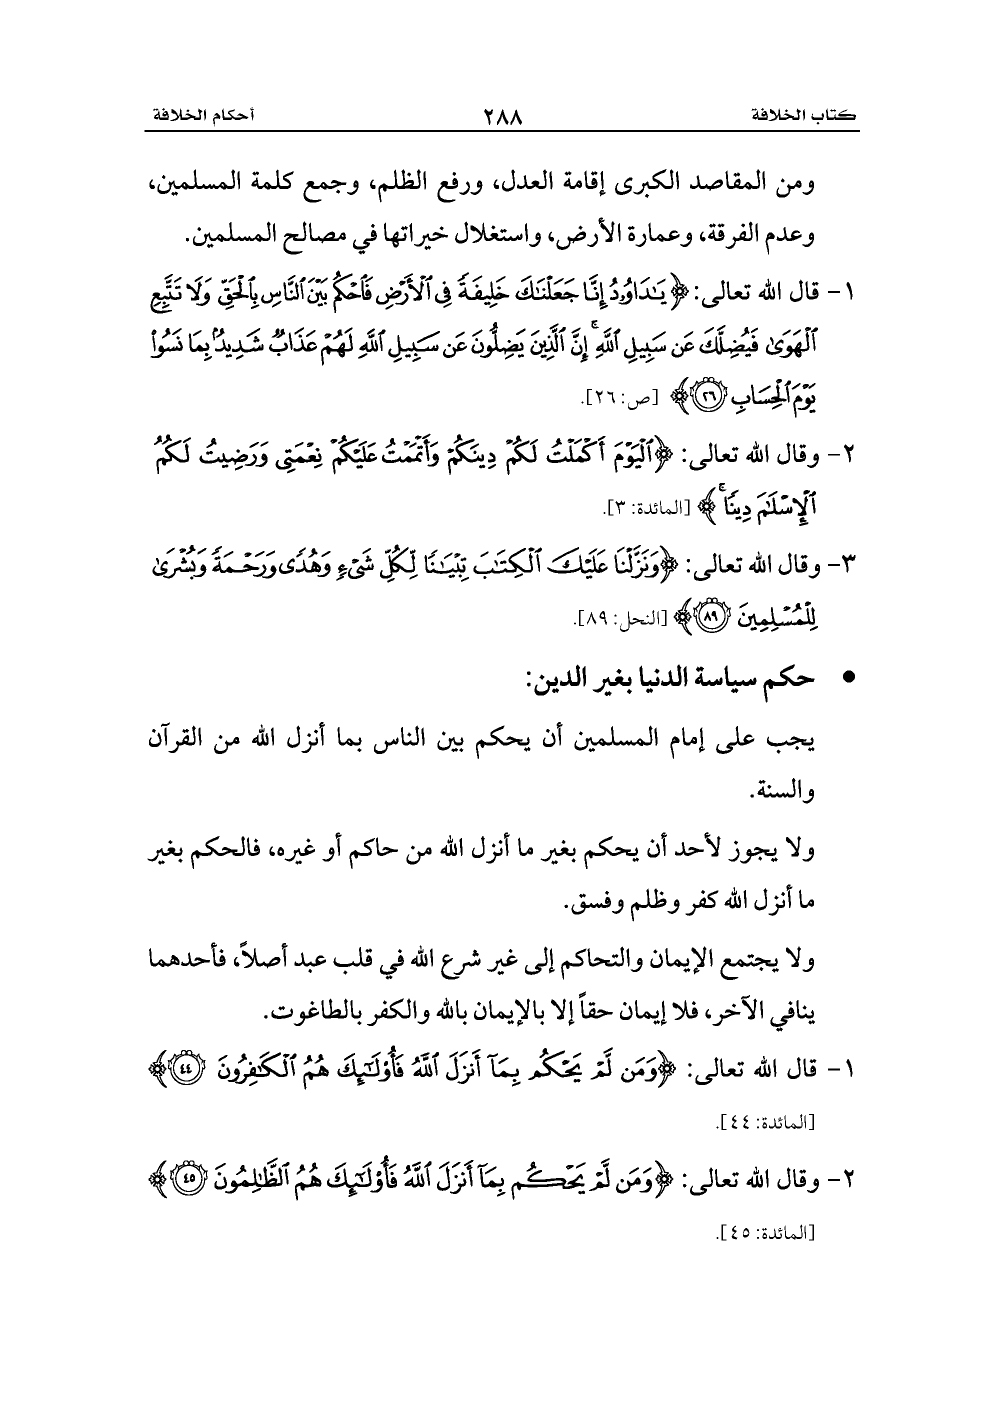 كتاب الخلافة ٢٨٨ أحكام الخلافة
ومن المقاصد الكبرى إقامة العدل، ورفع الظلم، وجمع كلمة المسلمين،
وعدم الفرقة، وعمارة الأرض، واستغلال خيراتها في مصالح المسلمين.
١- قال الله تعالى: ﴿يَٰدَاوُۥدُ إِنَّا جَعَلْنَٰكَ خَلِيفَةً فِى ٱلْأَرْضِ فَٱحْكُم بَيْنَ ٱلنَّاسِ بِٱلْحَقِّ وَلَا تَتَّبِعِ
ٱلْهَوَىٰ فَيُضِلَّكَ عَن سَبِيلِ ٱللَّهِ ۚ إِنَّ ٱلَّذِينَ يَضِلُّونَ عَن سَبِيلِ ٱللَّهِ لَهُمْ عَذَابٌ شَدِيدٌۢ بِمَا نَسُوا۟
يَوْمَ ٱلْحِسَابِ ٢٦﴾ [ص: ٢٦].
٢- وقال الله تعالى: ﴿ٱلْيَوْمَ أَكْمَلْتُ لَكُمْ دِينَكُمْ وَأَتْمَمْتُ عَلَيْكُمْ نِعْمَتِى وَرَضِيتُ لَكُمُ
ٱلْإِسْلَٰمَ دِينًا ۚ﴾ [المائدة: ٣].
٣- وقال الله تعالى: ﴿وَنَزَّلْنَا عَلَيْكَ ٱلْكِتَٰبَ تِبْيَٰنًا لِّكُلِّ شَىْءٍ وَهُدًى وَرَحْمَةً وَبُشْرَىٰ
لِلْمُسْلِمِينَ ٨٩﴾ [النحل: ٨٩].
● حكم سياسة الدنيا بغير الدين:
يجب على إمام المسلمين أن يحكم بين الناس بما أنزل الله من القرآن
والسنة.
ولا يجوز لأحد أن يحكم بغير ما أنزل الله من حاكم أو غيره، فالحكم بغير
ما أنزل الله كفر وظلم وفسق.
ولا يجتمع الإيمان والتحاكم إلى غير شرع الله في قلب عبد أصلاً، فأحدهما
ينافي الآخر، فلا إيمان حقاً إلا بالإيمان بالله والكفر بالطاغوت.
١- قال الله تعالى: ﴿وَمَن لَّمْ يَحْكُم بِمَآ أَنزَلَ ٱللَّهُ فَأُو۟لَٰٓئِكَ هُمُ ٱلْكَٰفِرُونَ ٤٤﴾
[المائدة: ٤٤].
٢- وقال الله تعالى: ﴿وَمَن لَّمْ يَحْكُم بِمَآ أَنزَلَ ٱللَّهُ فَأُو۟لَٰٓئِكَ هُمُ ٱلظَّٰلِمُونَ ٤٥﴾
[المائدة: ٤٥].